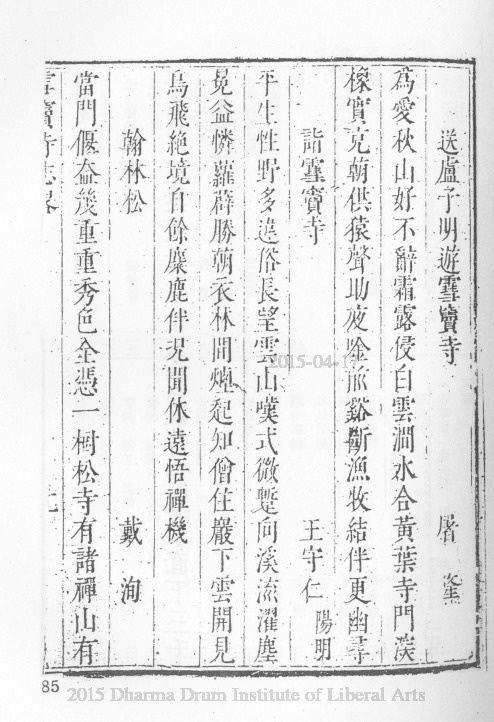 送盧子明遊雪竇寺 屠隆
為愛秋山好不辭霜露侵白雲澗水合黃葉寺門深
橡實充朝供猿聲助夜吟前谿斷漁牧結伴更幽尋
詣雪竇寺 王守仁 陽明
平生性野多違俗長望雲山嘆式微蹔向溪流濯塵
冕益憐蘿薜勝朝衣林間煙起知僧住巖下雲開見
鳥飛絕境自餘麋鹿伴況聞休遠悟禪機
翰林松 戴洵
當門偃蓋幾重重秀色全憑一樹松寺有諸禪山有
雪竇寺志畧
85
2015-04-1
2015 Dharma Drum Institute of Liberal Arts